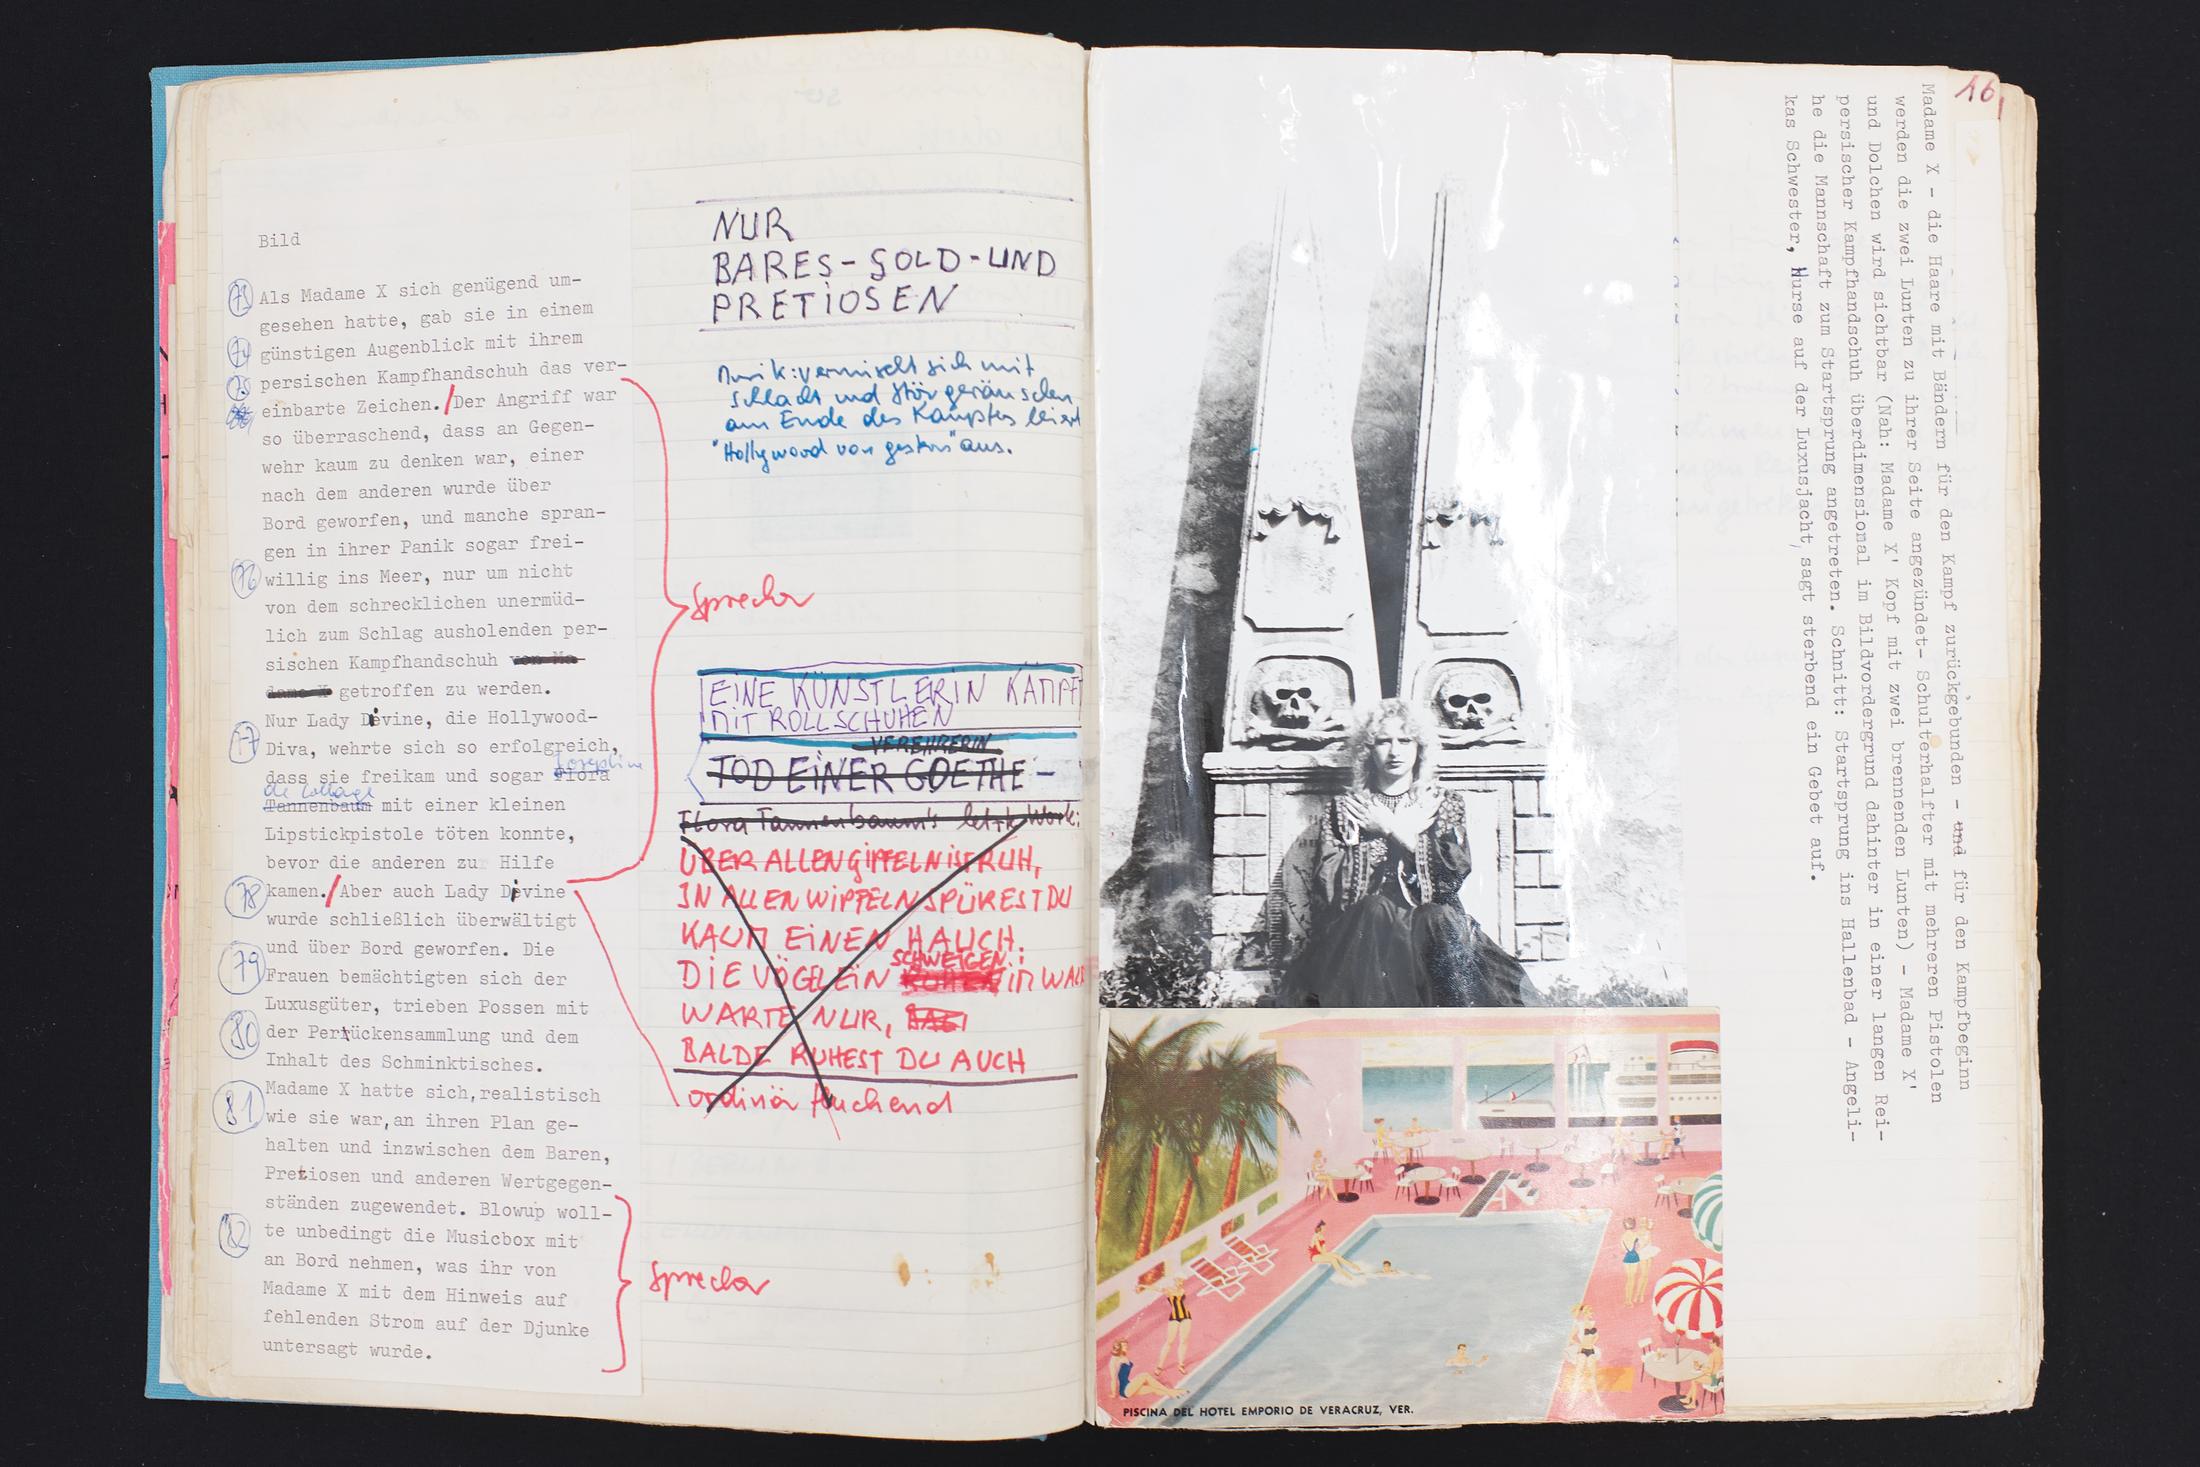 Bild
73 Als Madame X sich genügend um-
gesehen hatte, gab sie in einem
74 günstigen Augenblick mit ihrem
75 persischen Kampfhandschuh das ver-
einbarte Zeichen. / Der Angriff war
so überraschend, dass an Gegen-
wehr kaum zu denken war, einer
nach dem anderen wurde über
Bord geworfen, und manche spran-
gen in ihrer Panik sogar frei-
76 willig ins Meer, nur um nicht
von dem schrecklichen unermüd-
lich zum Schlag ausholenden per-
sischen Kampfhandschuh von Ma-
dame X getroffen zu werden.
Nur Lady Divine, die Hollywood-
77 Diva, wehrte sich so erfolgreich,
Josephine
dass sie freikam und sogar Flora
de Collage
Tannenbaum mit einer kleinen
Lipstickpistole töten konnte,
bevor die anderen zu Hilfe
78 kamen. / Aber auch Lady Divine
wurde schließlich überwältigt
und über Bord geworfen. Die
79 Frauen bemächtigten sich der
Luxusgüter, trieben Possen mit
80 der Perrückensammlung und dem
Inhalt des Schminktisches.
81 Madame X hatte sich, realistisch
wie sie war, an ihren Plan ge-
halten und inzwischen dem Baren,
Pretiosen und anderen Wertgegen-
ständen zugewendet. Blowup woll-
82 te unbedingt die Musicbox mit
an Bord nehmen, was ihr von
Madame X mit dem Hinweis auf
fehlenden Strom auf der Djunke
untersagt wurde.
NUR
BARES-GOLD-UND
PRETIOSEN
Musik: vermischt sich mit
Schlacht und Störgeräuschen
am Ende des Kampfes leiert
"Hollywood von gestern" aus.
Sprecher
EINE KÜNSTLERIN KÄMPFT
MIT ROLLSCHUHEN
VEREHRERIN
TOD EINER GOETHE-
Flora Tannenbaum's letzte Worte:
ÜBER ALLEN GIPFELN IST RUH,
IN ALLEN WIPFELN SPÜREST DU
KAUM EINEN HAUCH.
SCHWEIGEN
DIE VÖGELEIN RUHEN IM WALD
WARTE NUR,
BALDE RUHEST DU AUCH
ordinär fluchend
Sprecher
46
Madame X - die Haare mit Bändern für den Kampf zurückgebunden - und für den Kampfbeginn
werden die zwei Lunten zu ihrer Seite angezündet- Schulterhalfter mit mehreren Pistolen
und Dolchen wird sichtbar (Nah: Madame X' Kopf mit zwei brennenden Lunten) - Madame X'
persischer Kampfhandschuh überdimensional im Bildvordergrund dahinter in einer langen Rei-
he die Mannschaft zum Startsprung angetreten. Schnitt: Startsprung ins Hallenbad - Angeli-
kas Schwester, Nurse auf der Luxusjacht, sagt sterbend ein Gebet auf.
PISCINA DEL HOTEL EMPORIO DE VERACRUZ, VER.